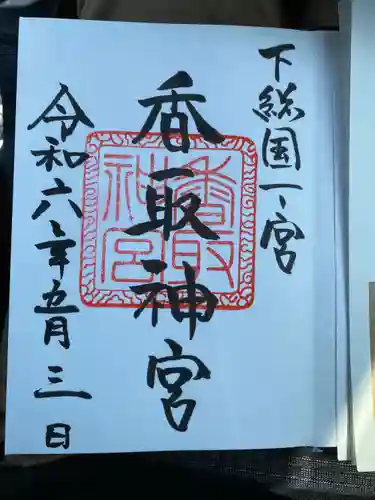 下総国一之宮
香取神宮
香取神宮
令和六年五月三日